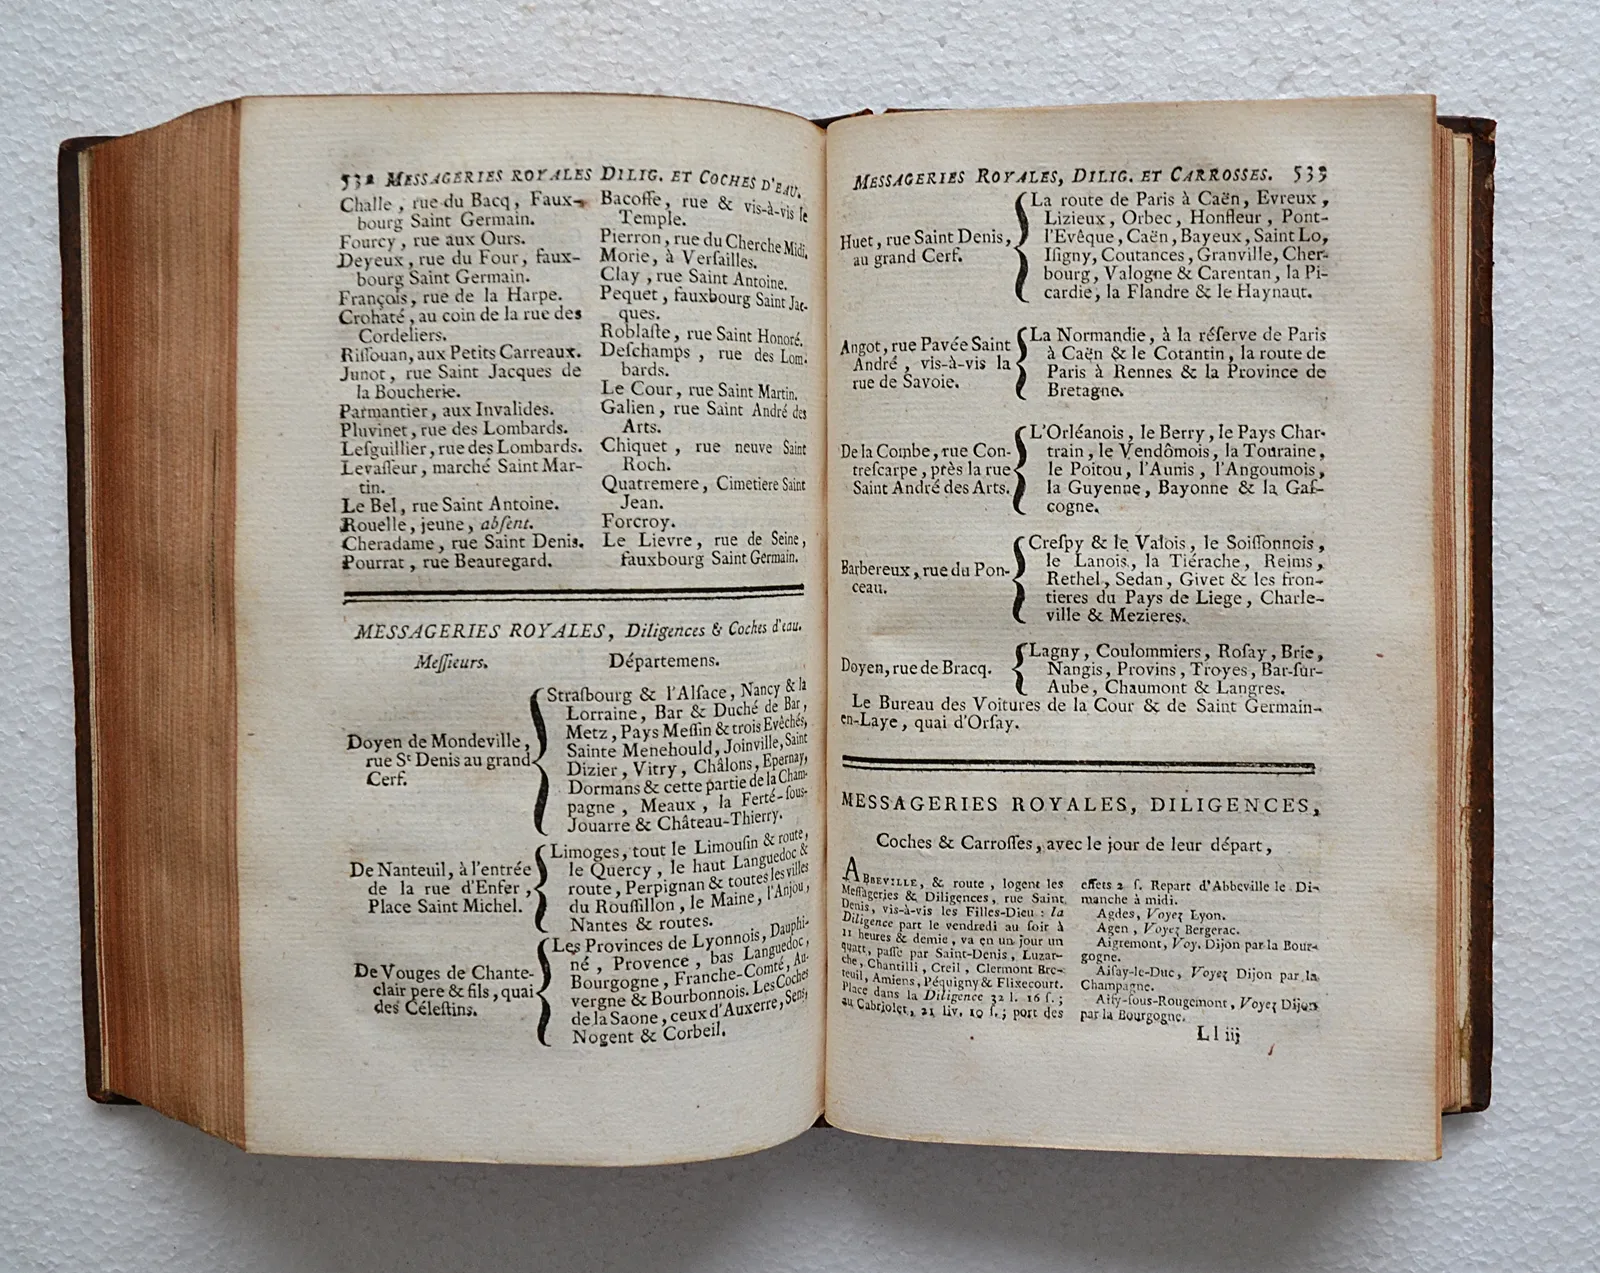 532 MESSAGERIES ROYALES DILIG. ET COCHES D'EAU.
Challe, rue du Bacq, Faux-
bourg Saint Germain.
Fourcy, rue aux Ours.
Deyeux, rue du Four, faux-
bourg Saint Germain.
François, rue de la Harpe.
Crohaté, au coin de la rue des
Cordeliers.
Riſſouan, aux Petits Carreaux.
Junot, rue Saint Jacques de
la Boucherie.
Parmantier, aux Invalides.
Pluvinet, rue des Lombards.
Leſguillier, rue des Lombards.
Levaſſeur, marché Saint Mar-
tin.
Le Bel, rue Saint Antoine.
Rouelle, jeune, abſent.
Cheradame, rue Saint Denis.
Pourrat, rue Beauregard.
Bacoffe, rue & vis-à-vis le
Temple.
Pierron, rue du Cherche Midi.
Morie, à Verſailles.
Clay, rue Saint Antoine.
Pequet, fauxbourg Saint Jac-
ques.
Roblaſte, rue Saint Honoré.
Deſchamps, rue des Lom-
bards.
Le Cour, rue Saint Martin.
Galien, rue Saint André des
Arts.
Chiquet, rue neuve Saint
Roch.
Quatremere, Cimetiere Saint
Jean.
Forcroy.
Le Lievre, rue de Seine,
fauxbourg Saint Germain.
MESSAGERIES ROYALES, Diligences & Coches d'eau.
Meſſieurs. Départemens.
Doyen de Mondeville,
rue St Denis au grand
Cerf.
Straſbourg & l'Alſace, Nancy & la
Lorraine, Bar & Duché de Bar,
Metz, Pays Meſſin & trois Evêchés,
Sainte Menehould, Joinville, Saint
Dizier, Vitry, Châlons, Epernay,
Dormans & cette partie de la Cham-
pagne, Meaux, la Ferté-ſous-
Jouarre & Château-Thierry.
De Nanteuil, à l'entrée
de la rue d'Enfer,
Place Saint Michel.
Limoges, tout le Limouſin & route,
le Quercy, le haut Languedoc &
route, Perpignan & toutes les villes
du Rouſſillon, le Maine, l'Anjou,
Nantes & routes.
De Vouges de Chante-
clair pere & fils, quai
des Céleſtins.
Les Provinces de Lyonnois, Dauphi-
né, Provence, bas Languedoc,
Bourgogne, Franche-Comté, Au-
vergne & Bourbonnois. Les Coches
de la Saone, ceux d'Auxerre, Sens,
Nogent & Corbeil.
MESSAGERIES ROYALES, DILIG. ET CARROSSES. 533
Huet, rue Saint Denis,
au grand Cerf.
La route de Paris à Caën, Evreux,
Lizieux, Orbec, Honfleur, Pont-
l'Evêque, Caën, Bayeux, Saint Lo,
Iſigny, Coutances, Granville, Cher-
bourg, Valogne & Carentan, la Pi-
cardie, la Flandre & le Haynaut.
Angot, rue Pavée Saint
André, vis-à-vis la
rue de Savoie.
La Normandie, à la réſerve de Paris
à Caën & le Cotantin, la route de
Paris à Rennes & la Province de
Bretagne.
De la Combe, rue Con-
treſcarpe, près la rue
Saint André des Arts.
L'Orléanois, le Berry, le Pays Char-
train, le Vendômois, la Touraine,
le Poitou, l'Aunis, l'Angoumois,
la Guyenne, Bayonne & la Gaſ-
cogne.
Barbereux, rue du Pon-
ceau.
Creſpy & le Valois, le Soiſſonnois,
le Lanois, la Tiérache, Reims,
Rethel, Sedan, Givet & les fron-
tieres du Pays de Liege, Charle-
ville & Mezieres.
Doyen, rue de Bracq.
Lagny, Coulommiers, Roſay, Brie,
Nangis, Provins, Troyes, Bar-ſur-
Aube, Chaumont & Langres.
Le Bureau des Voitures de la Cour & de Saint Germain-
en-Laye, quai d'Orſay.
MESSAGERIES ROYALES, DILIGENCES,
Coches & Carroſſes, avec le jour de leur départ,
ABBEVILLE, & route, logent les
Meſſageries & Diligences, rue Saint
Denis, vis-à-vis les Filles-Dieu : la
Diligence part le vendredi au ſoir à
11 heures & demie, va en un jour un
quart, paſſe par Saint-Denis, Luzar-
che, Chantilli, Creil, Clermont Bre-
teuil, Amiens, Péquigny & Flixecourt.
Place dans la Diligence 32 l. 16 ſ. ;
au Cabriolet, 21 liv. 10 ſ. ; port des
effets 2 ſ. Repart d'Abbeville le Di-
manche à midi.
Agdes, Voyez Lyon.
Agen, Voyez Bergerac.
Aigremont, Voy. Dijon par la Bour-
gogne.
Aiſay-le-Duc, Voyez Dijon par la
Champagne.
Aiſy-ſous-Rougemont, Voyez Dijon
par la Bourgogne.
Ll iij